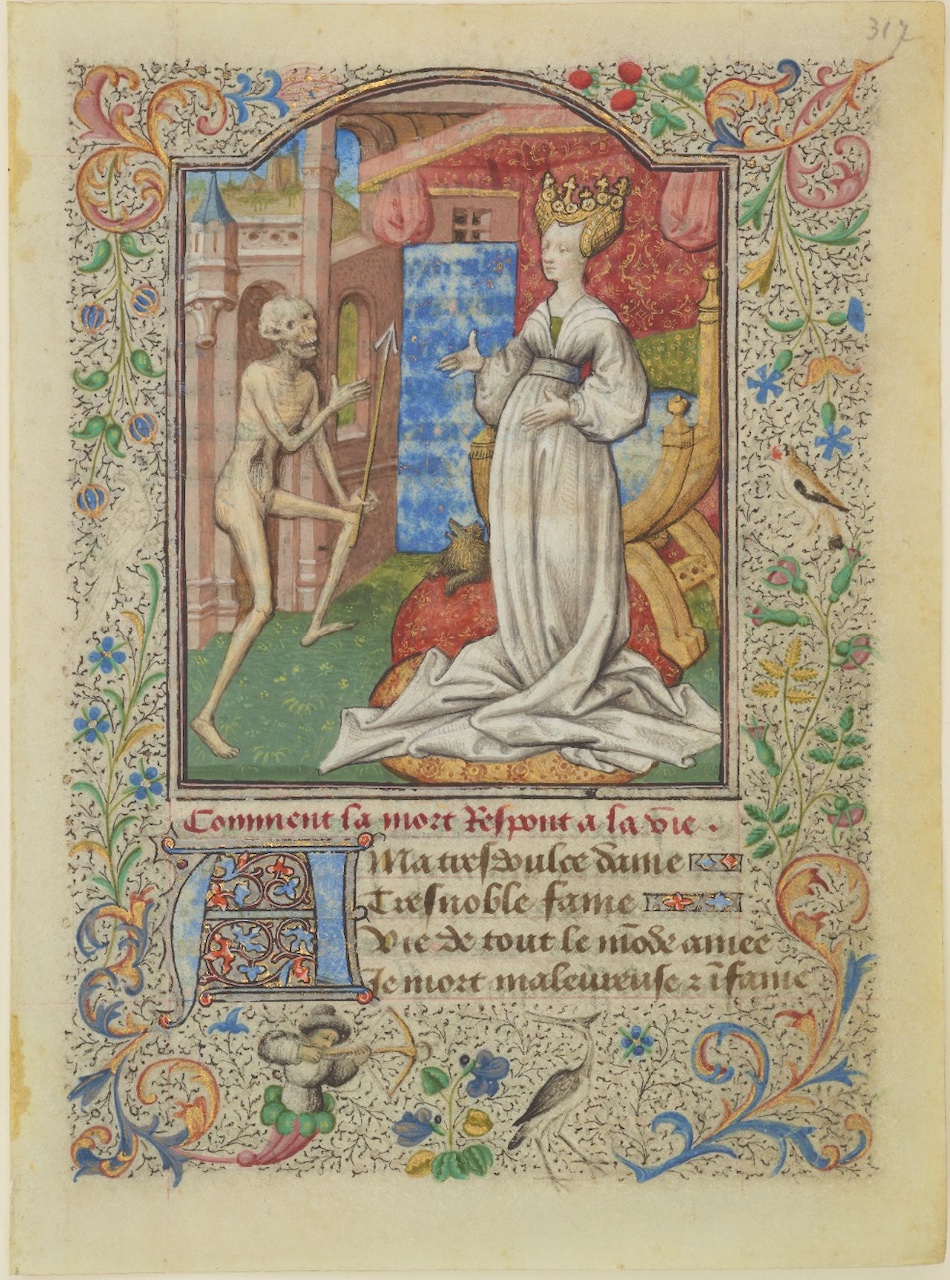 317
Comment la mort Respont a la vie .
A Ma tresdoulce dame
Tresnoble fame
Vie de tout le mõde amee
Je mort maleureuse ⁊ ĩfame